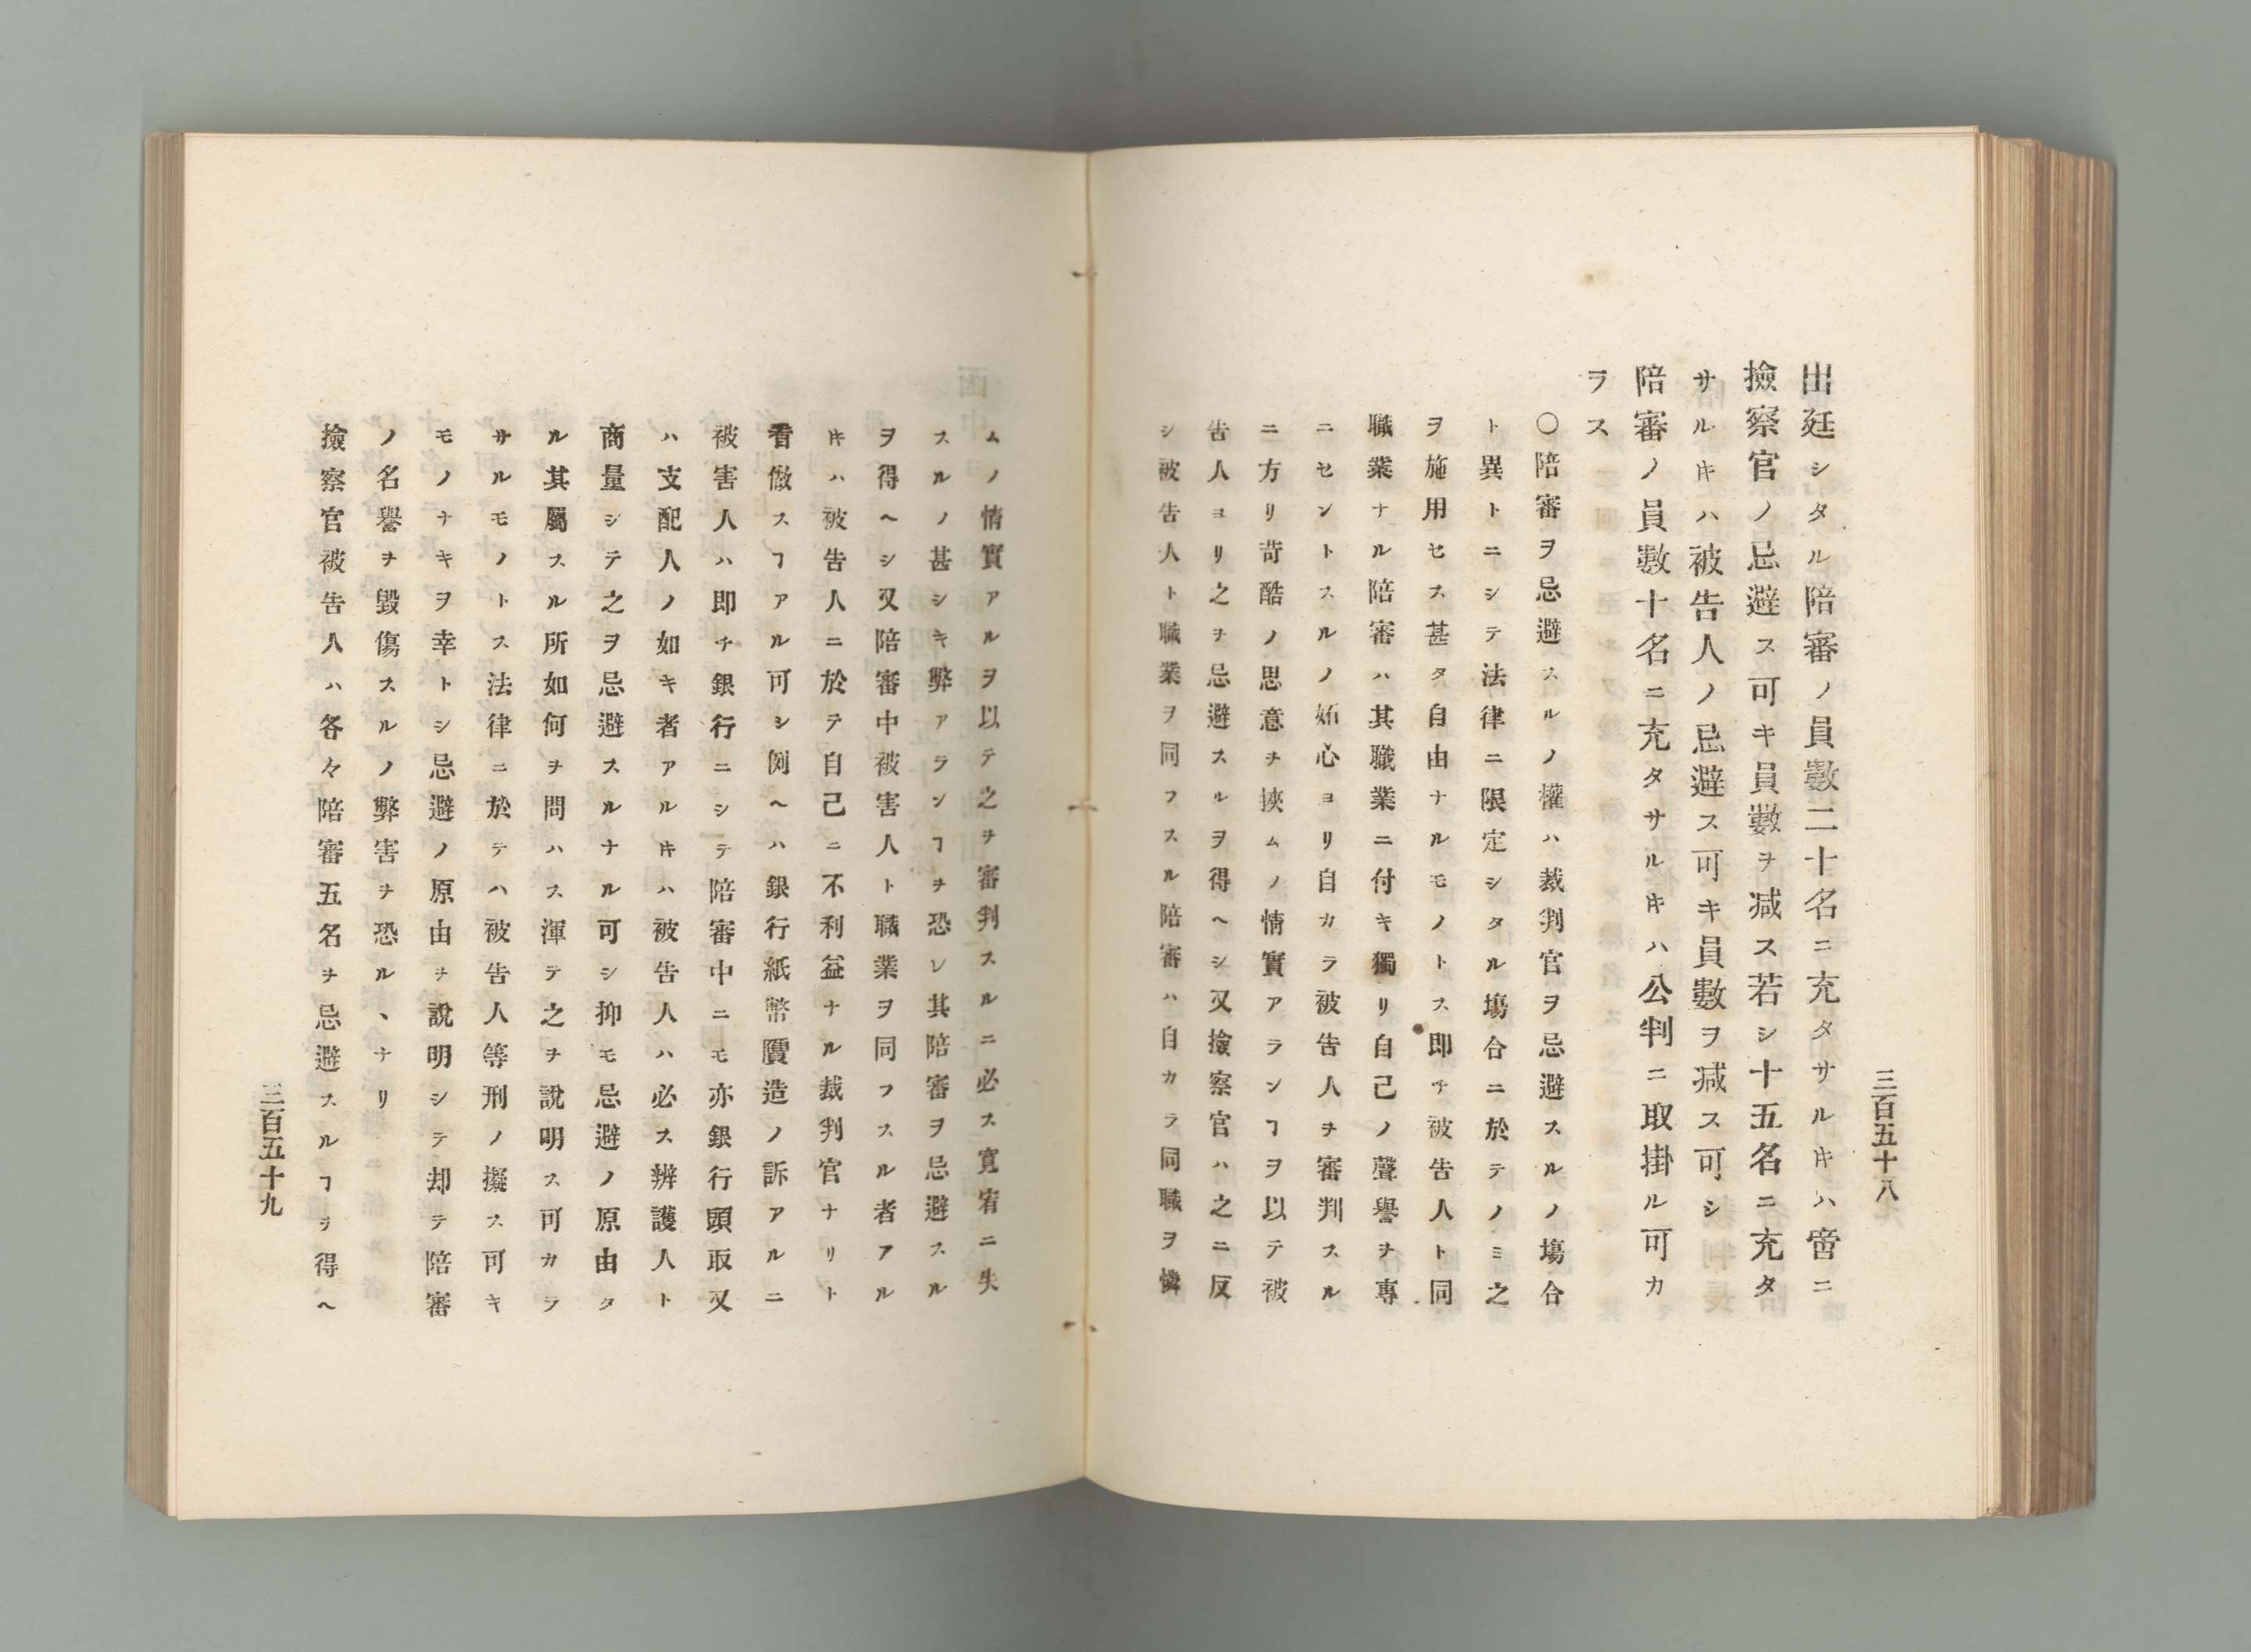 三百五十八
出廷シタル陪審ノ員數二十名ニ充タサルキハ啻ニ
撿察官ノ忌避ス可キ員數ヲ減ス若シ十五名ニ充タ
サルキハ被告人ノ忌避ス可キ員數ヲ減ス可シ
陪審ノ員數十名ニ充タサルキハ公判ニ取掛ル可カ
ラス
〇陪審ヲ忌避スルノ權ハ裁判官ヲ忌避スルノ塲合
ト異トニシテ法律ニ限定シタル塲合ニ於テノミ之
ヲ施用セス甚タ自由ナルモノトス即チ被告人ト同
職業ナル陪審ハ其職業ニ付キ獨リ自己ノ聲譽ヲ專
ニセントスルノ妬心ヨリ自カラ被告人ヲ審判スル
ニ方リ苛酷ノ思意ヲ挾ムノ情實アランヿヲ以テ被
告人ヨリ之ヲ忌避スルヲ得ヘシ又撿察官ハ之ニ反
シ被告人ト職業ヲ同フスル陪審ハ自カラ同職ヲ憐
ムノ情實アルヲ以テ之ヲ審判スルニ必ス寛宥ニ失
スルノ甚シキ弊アランヿヲ恐レ其陪審ヲ忌避スル
ヲ得ヘシ又陪審中被害人ト職業ヲ同フスル者アル
キハ被告人ニ於テ自己ニ不利益ナル裁判官ナリト
看倣スヿアル可シ例ヘハ銀行紙幣贋造ノ訴アルニ
被害人ハ即チ銀行ニシテ陪審中ニモ亦銀行頭取又
ハ支配人ノ如キ者アルキハ被告人ハ必ス辨護人ト
商量シテ之ヲ忌避スルナル可シ抑モ忌避ノ原由タ
ル其屬スル所如何ヲ問ハス渾テ之ヲ說明ス可カラ
サルモノトス法律ニ於テハ被告人等刑ノ擬ス可キ
モノナキヲ幸トシ忌避ノ原由ヲ說明シテ却テ陪審
ノ名譽ヲ毀傷スルノ弊害ヲ恐ルヽナリ
撿察官被告人ハ各々陪審五名ヲ忌避スルヿヲ得ヘ
三百五十九